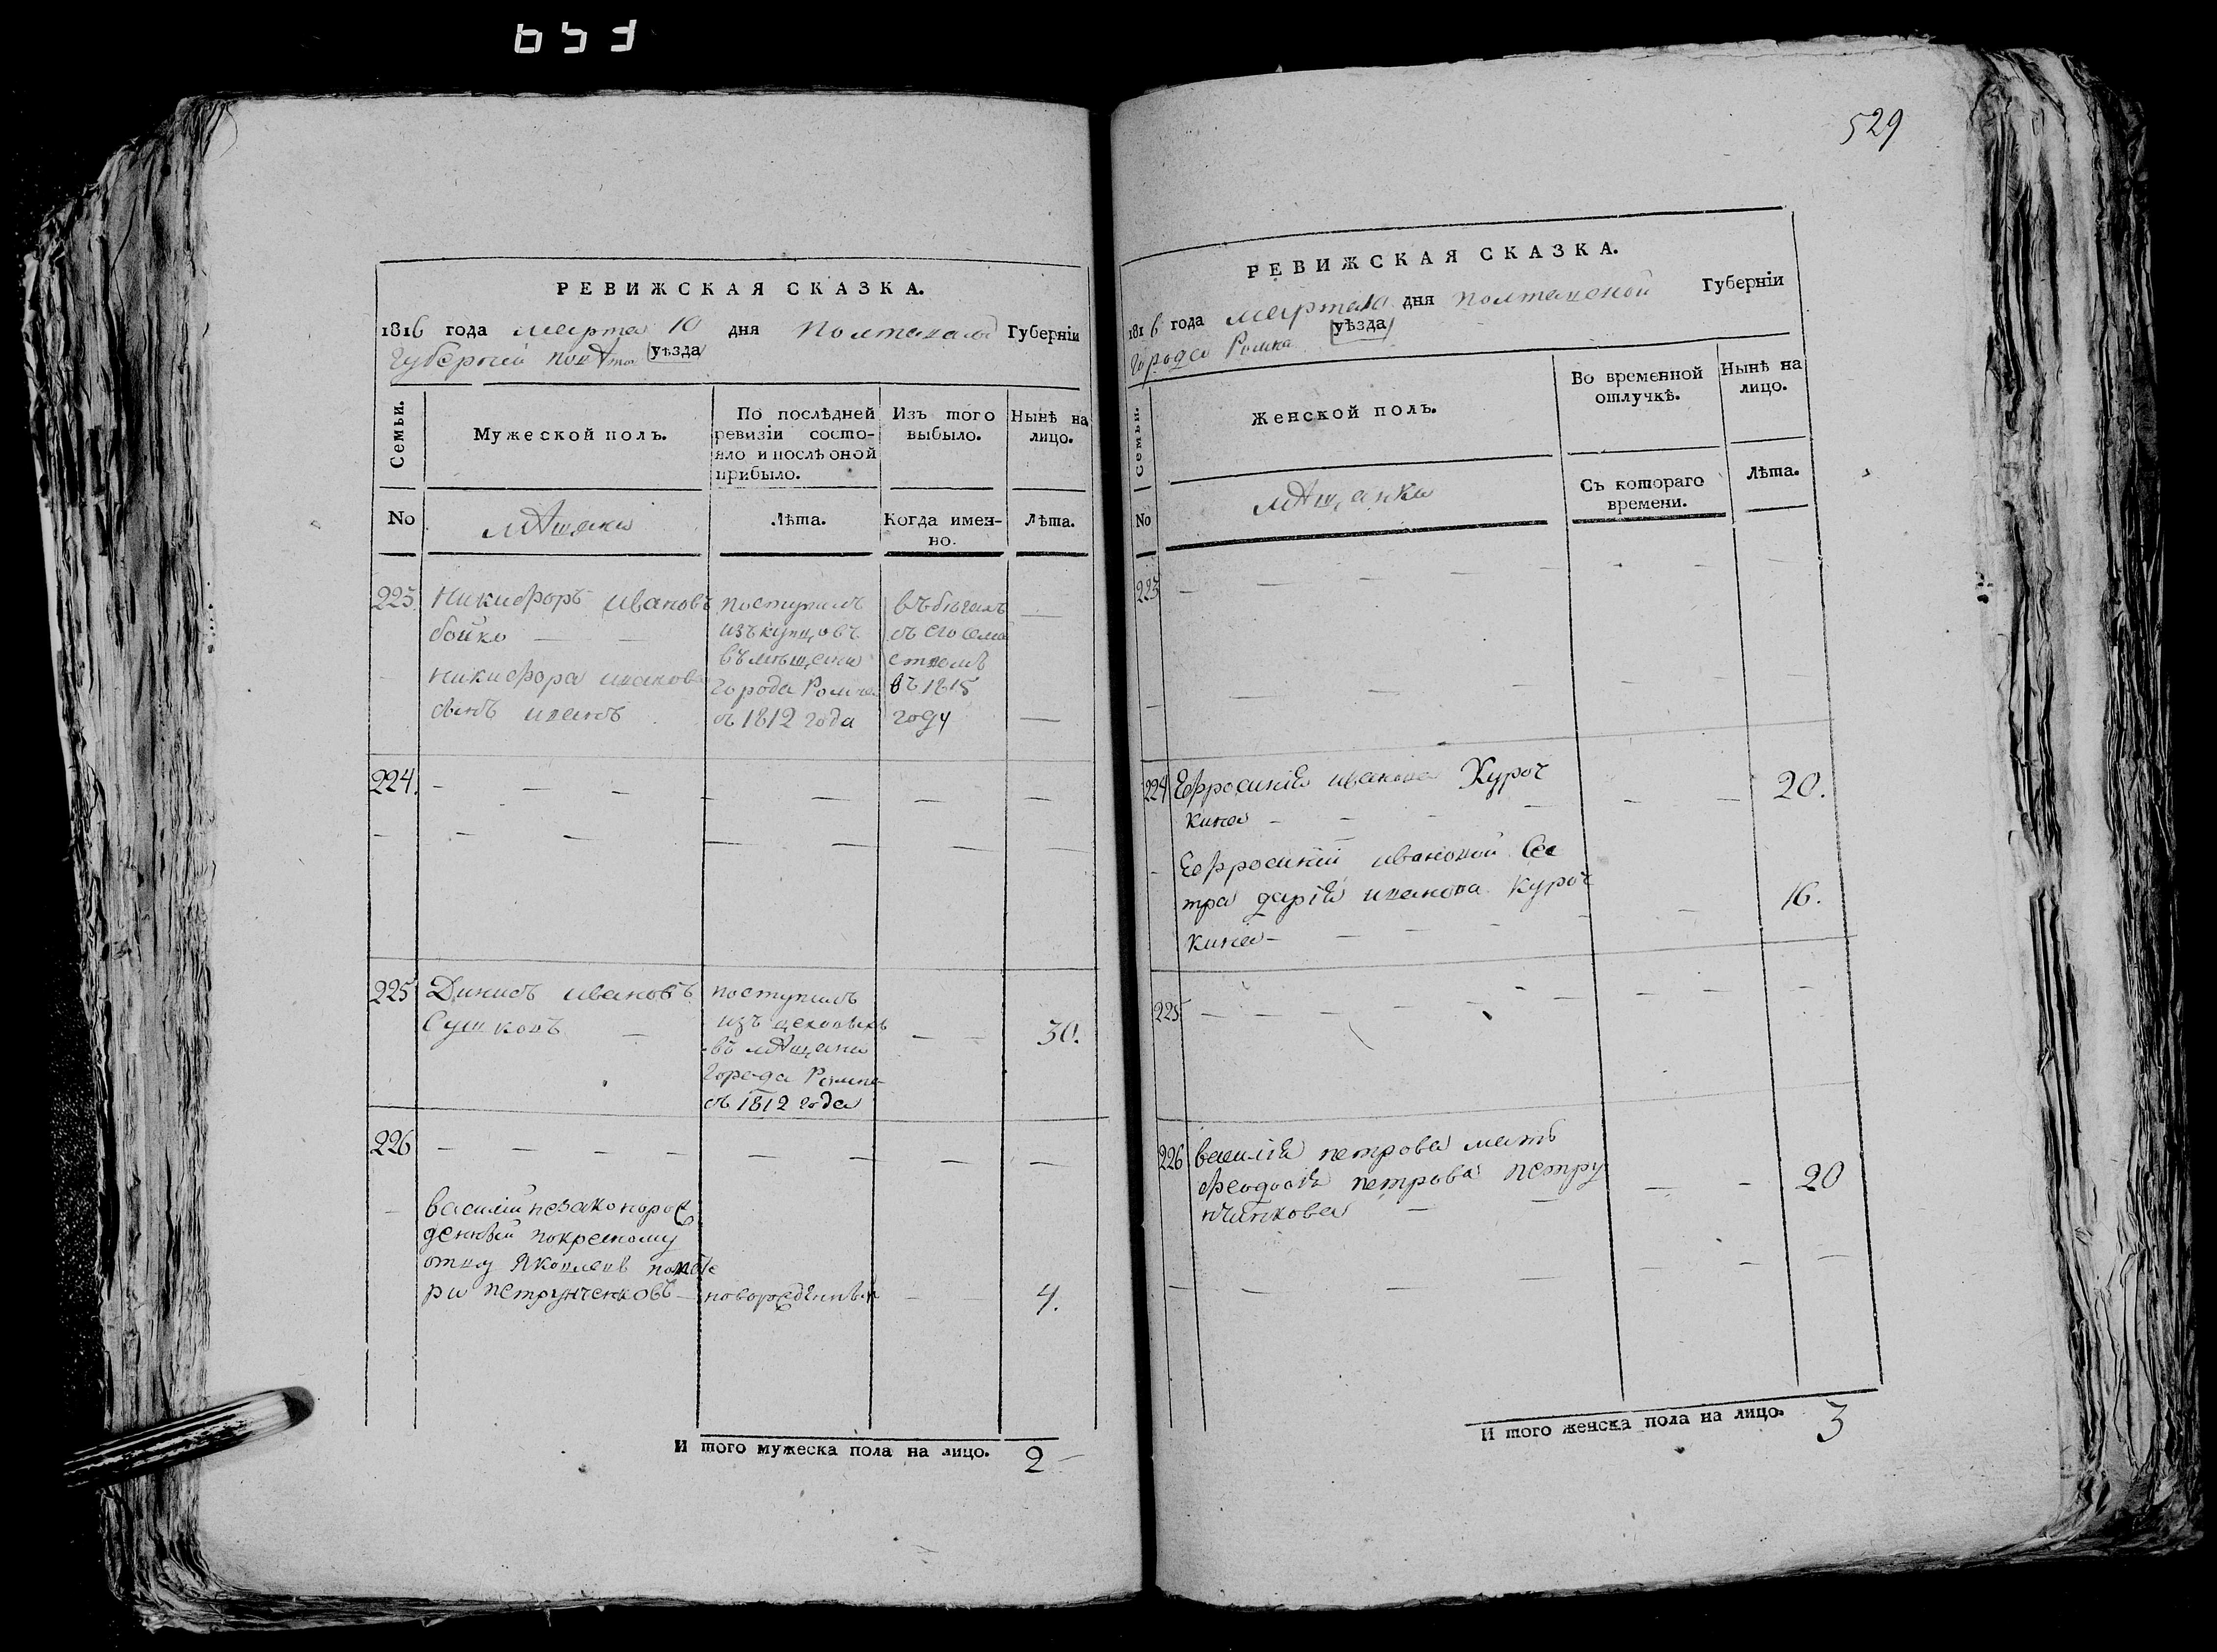 529
РЕВИЖСКАЯ СКАЗКА.
1816 года марта 10 дня Губерніи
уѣзда
Семьи.
Мужеской полъ.
По послѣдней ревизіи состояло и послѣ оной прибыло.
Изъ того выбыло.
Нынѣ на лицо.
No
мѣщане
Лѣта.
Когда именно.
Лѣта.
223. Никифоръ ивановъ
бойко
никифора иванова
сынъ иванъ
поступилъ
изъ купцовъ
въ мѣщани
города Ромна
съ 1812 года
съ его семе
ствомъ
въ 1815
году
224.
225 Динисъ ивановъ
Сушковъ
поступилъ
изъ цеховыхъ
въ мѣщани
города Ромна
съ 1812 года
30.
226
василій незаконорож
денный по кресному
отцу Яковлевъ по мате
ри петрунченковъ
новорожденный
4.
И того мужеска пола на лицо. 2
РЕВИЖСКАЯ СКАЗКА.
1816 года марта 10 дня полтавской Губерніи
города Ромна уѣзда
Семьи.
Женской полъ.
Во временной отлучкѣ.
Нынѣ на лицо.
No
мѣщанки
Съ котораго времени.
Лѣта.
223
224 Ефросинія иванова Куроч
кина
20.
Ефросиніи ивановой сес
тра дарія иванова Куроч
кина
16.
225
226 василія петрова мать
феодосія петрова петру
нчинкова
20
И того женска пола на лицо. 3